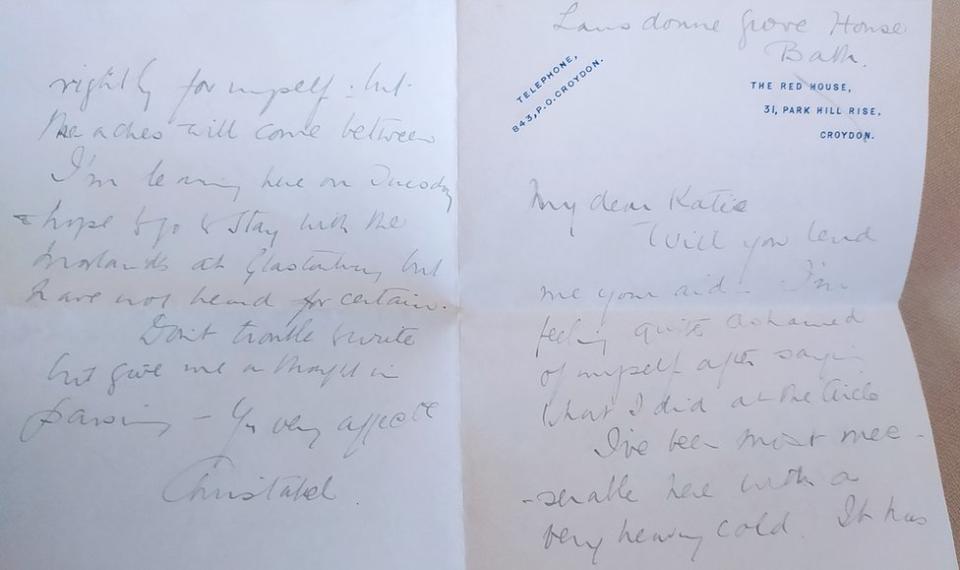 Lansdowne Grove House
Bath.
TELEPHONE,
843, P.O. CROYDON.
THE RED HOUSE,
31, PARK HILL RISE,
CROYDON.
My dear Katie
Will you lend
me your aid - I'm
feeling quite ashamed
of myself after saying
what I did at the Circle
I've been most mee-
-serable here with a
very heavy cold. It has
rightly for myself: but
the aches will come between
I'm leaving here on Tuesday
& hope to go & stay with the
Morlands at Glastonbury but
have not heard for certain.
Don't trouble to write
but give me a thought in
passing - Yr very affecte
Christabel.